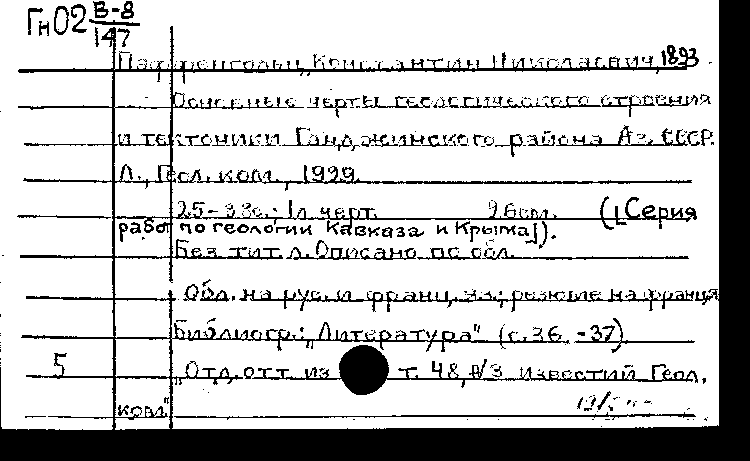 Гн02 В-8
147
Паффенгольц, Константин Николаевич, 1893
Основные черты геологического строения
и тектоники Ганджинского района Аз. СССР.
Л., Геол. ком., 1929.
25-38с.; 1л. черт. 26см. ([Серия
работ по геологии Кавказа и Крыма]).
Без тит. л. Описано по обл.
Обл. на рус. и франц. яз.; резюме на франц.я
Библиогр.: "Литература" (с. 36. -37).
5 "Отд. отт. из т. 48, №3 известий Геол.
ком"